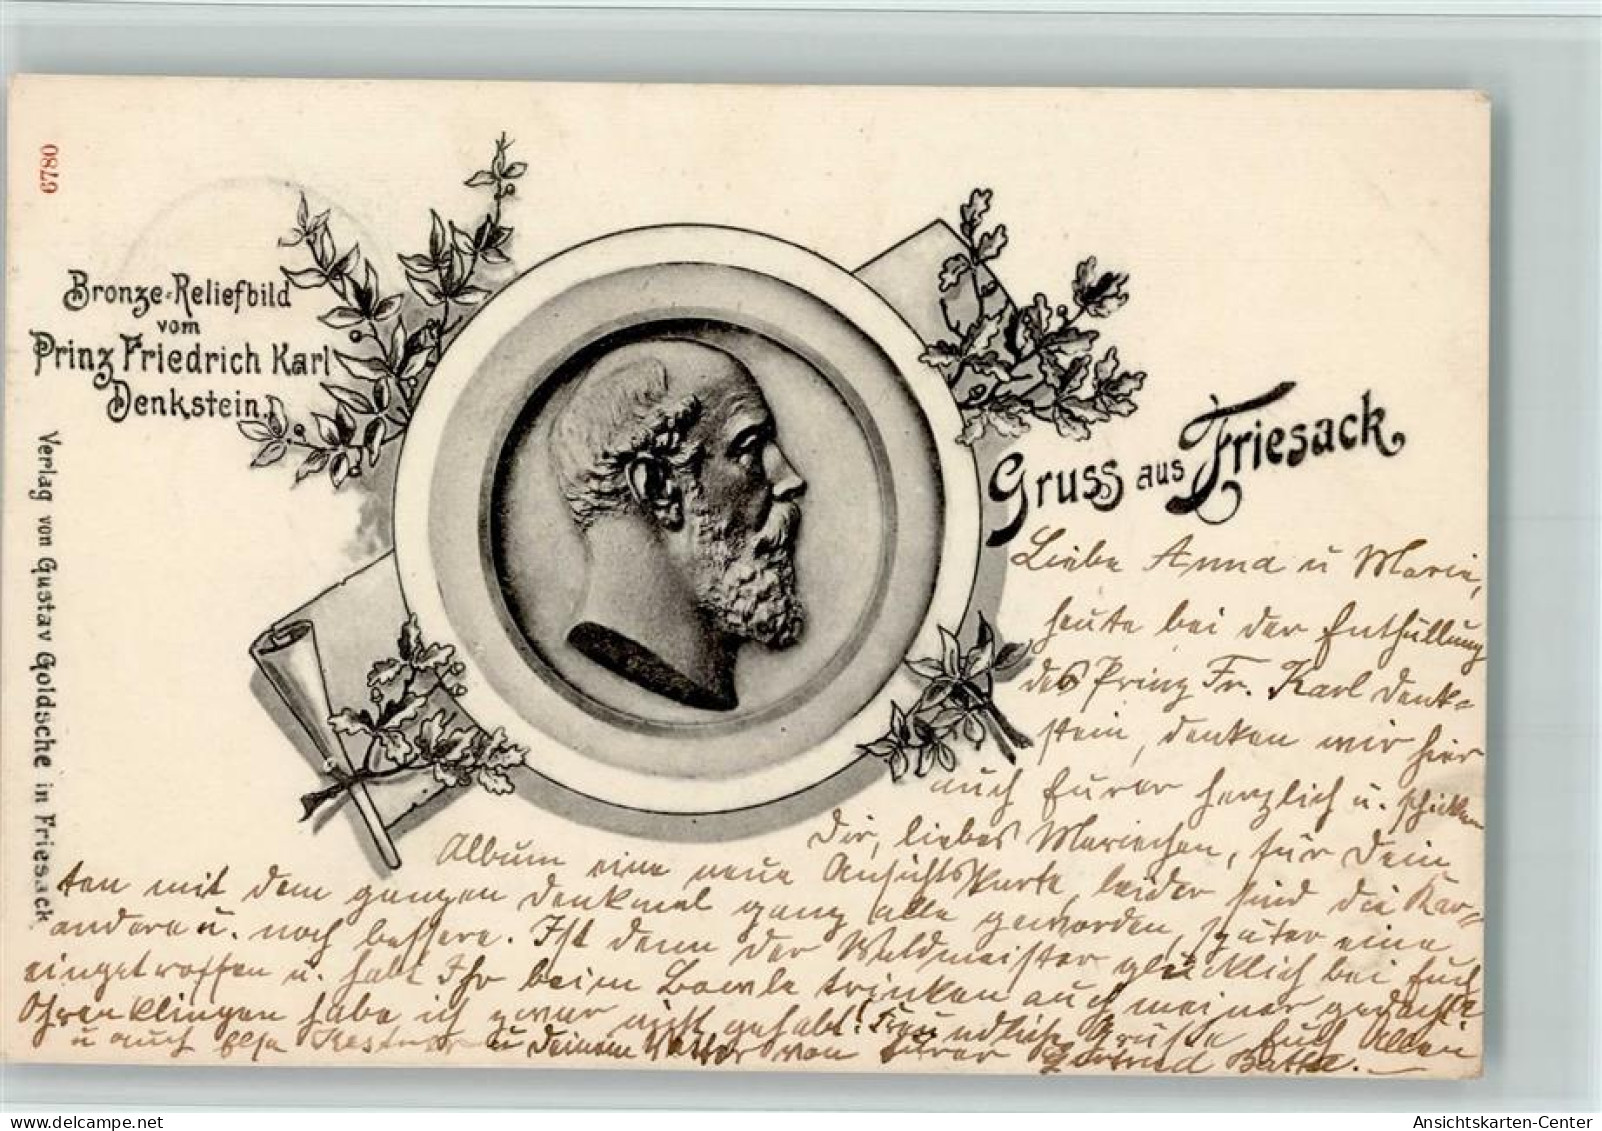 6780
Bronze-Reliefbild
vom
Prinz Friedrich Karl
Denkstein.
Verlag von Gustav Goldsche in Friesack.
Gruss aus Friesack
Liebe Anna u Marie,
heute bei der Enthüllung
des Prinz Fr. Karl Denk-
stein, denken wir hier
auch Eurer herzlich u. schicken
Dir, liebes Mariechen, für Dein
Album eine neue Ansichtskarte, leider sind die Kar-
ten mit dem ganzen Denkmal ganz alle geworden, später eine
andere u. noch bessere. Ist denn der Waldmeister glücklich bei Euch
eingetroffen u. habt Ihr beim Bowle trinken auch meiner gedacht?
Ohrenklingen habe ich zwar nicht gehabt! Freundliche Grüße Euch Allen
u auch Elsa u Deinem Vetter von Eurer Gertrud
Ansichtskarten-Center